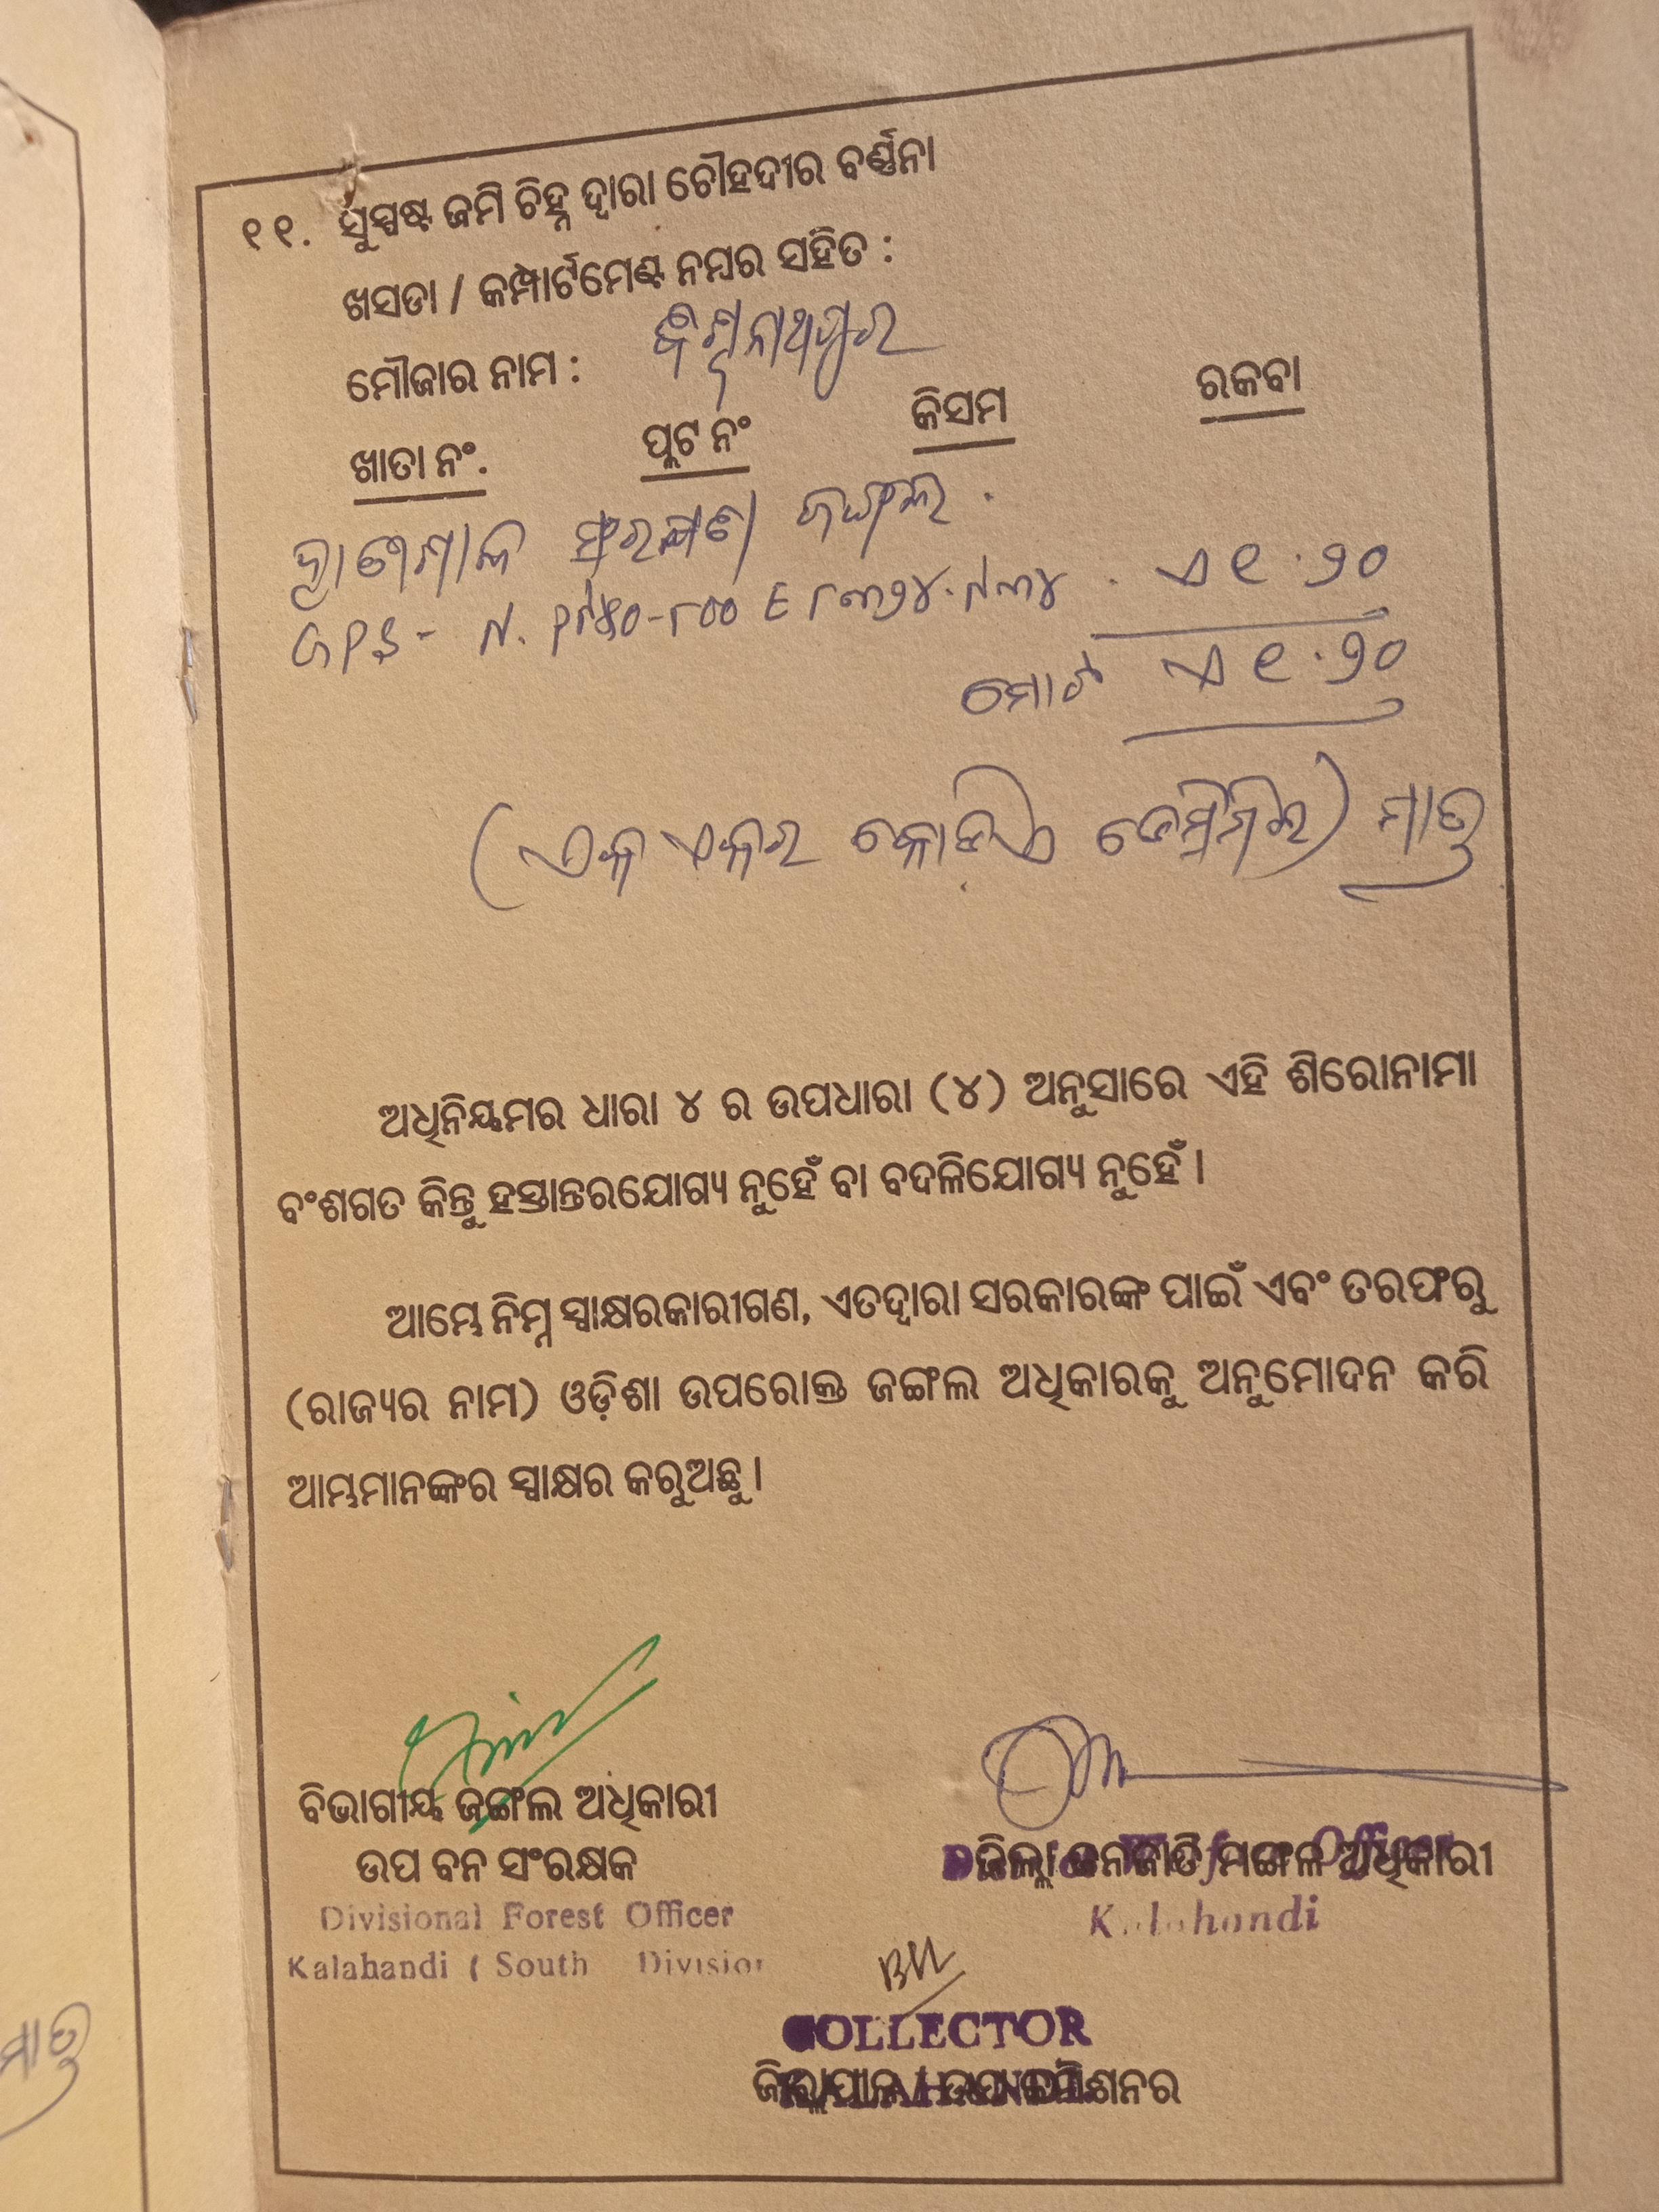 ୧୧. ସୁସ୍ପଷ୍ଟ ଜମି ଚିହ୍ନ ଦ୍ୱାରା ଚୌହଦୀର ବର୍ଣ୍ଣନା
ଖସଡା / କମ୍ପାର୍ଟମେଣ୍ଟ ନମ୍ବର ସହିତ :
ମୌଜାର ନାମ : ବିଶ୍ୱନାଥପୁର
ଖାତା ନଂ. ପ୍ଲଟ ନଂ କିସମ ରକବା
ସଂରକ୍ଷଣ ଜଙ୍ଗଲ .
GPS - N. ଏ ୧.୨୦
ମୋଟ ଏ ୧.୨୦
(ଏକ ଏକର କୋଡିଏ ଡେସିମିଲ) ମାତ୍ର
ଅଧିନିୟମର ଧାରା ୪ ର ଉପଧାରା (୪) ଅନୁସାରେ ଏହି ଶିରୋନାମା
ବଂଶଗତ କିନ୍ତୁ ହସ୍ତାନ୍ତରଯୋଗ୍ୟ ନୁହେଁ ବା ବଦଳିଯୋଗ୍ୟ ନୁହେଁ ।
ଆମ୍ଭେ ନିମ୍ନ ସ୍ୱାକ୍ଷରକାରୀଗଣ, ଏତଦ୍ୱାରା ସରକାରଙ୍କ ପାଇଁ ଏବଂ ତରଫରୁ
(ରାଜ୍ୟର ନାମ) ଓଡ଼ିଶା ଉପରୋକ୍ତ ଜଙ୍ଗଲ ଅଧିକାରକୁ ଅନୁମୋଦନ କରି
ଆମ୍ଭମାନଙ୍କର ସ୍ୱାକ୍ଷର କରୁଅଛୁ ।
ବିଭାଗୀୟ ଜଙ୍ଗଲ ଅଧିକାରୀ
ଉପ ବନ ସଂରକ୍ଷକ
Divisional Forest Officer
Kalahandi ( South Division
ଜିଲ୍ଲା ଜନଜାତି ମଙ୍ଗଳ ଅଧିକାରୀ
Kalahandi
COLLECTOR
ଜିଲ୍ଲାପାଳ / ଉପ କମିଶନର
ମାତ୍ର